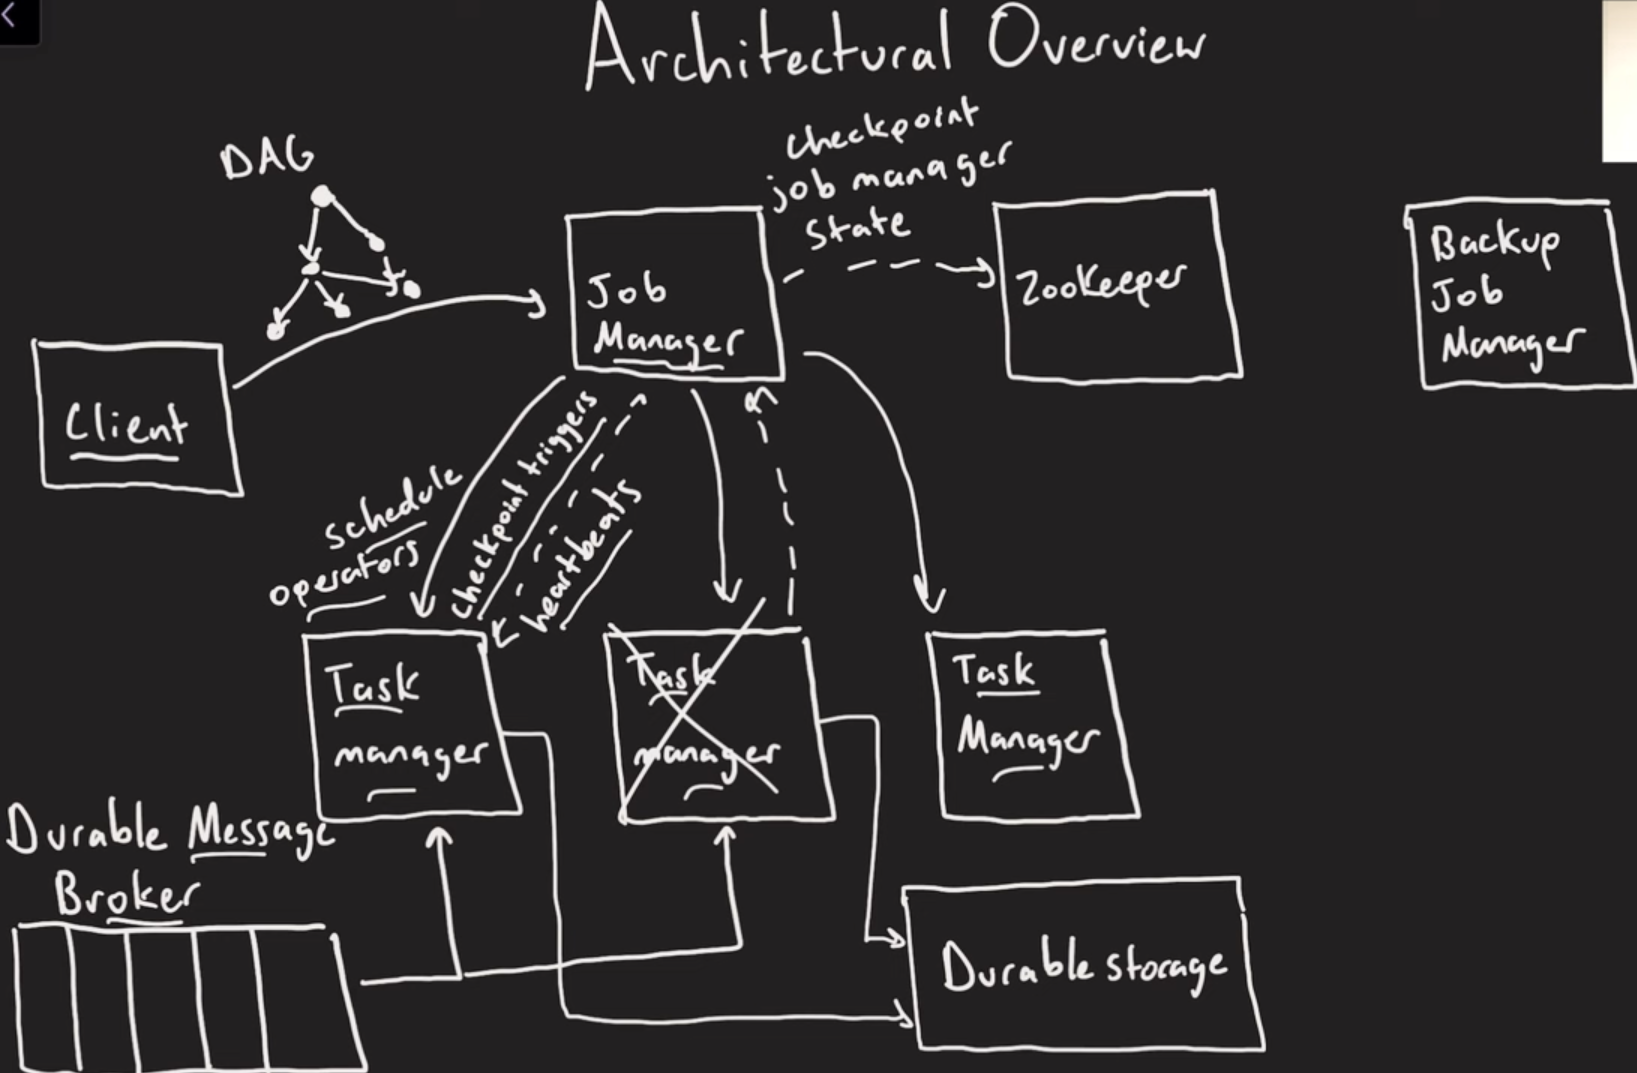 Architectural Overview
DAG
checkpoint
job manager
state
Job
Manager
Zookeeper
Backup
Job
Manager
Client
schedule
operators
checkpoint triggers
heartbeats
Task
manager
Task
manager
Task
Manager
Durable Message
Broker
Durable storage